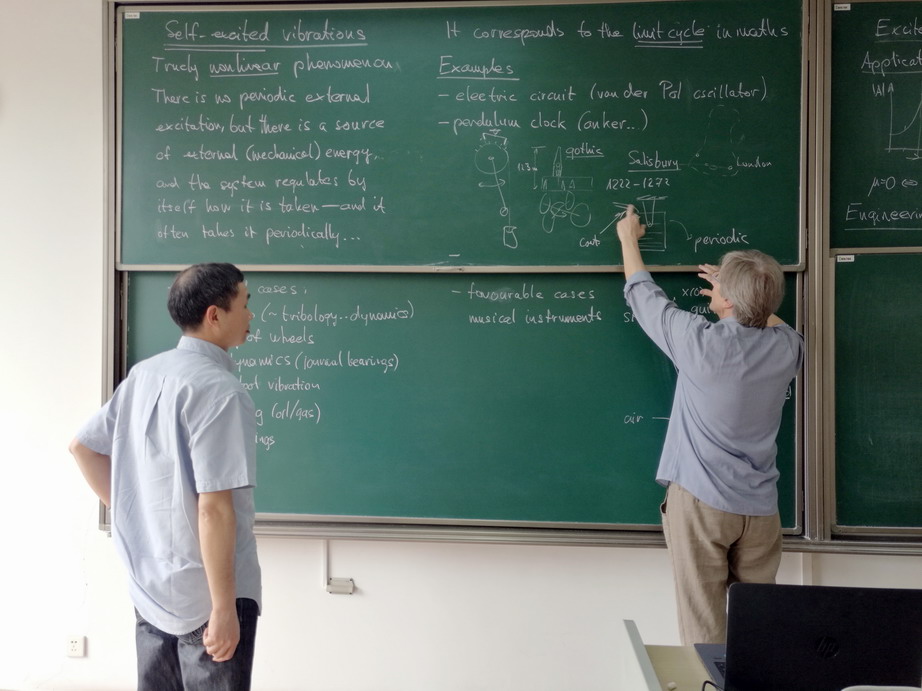 Self-excited vibrations
Truely nonlinear phenomenon
There is no periodic external
excitation, but there is a source
of external (mechanical) energy,
and the system regulates by
itself how it is taken — and it
often takes it periodically...
It corresponds to the limit cycle in maths
Examples
- electric circuit (van der Pol oscillator)
- pendulum clock (anker...)
123
gothic
Salisbury
1222-1272
London
periodic
cases,
(~ tribology..dynamics)
of wheels
ynamics (journal bearings)
ool vibration
g (oil/gas)
ings
- favourable cases
musical instruments
air
Excita
Applicat
|A|
μ=0 ⇔
Engineeri
hp